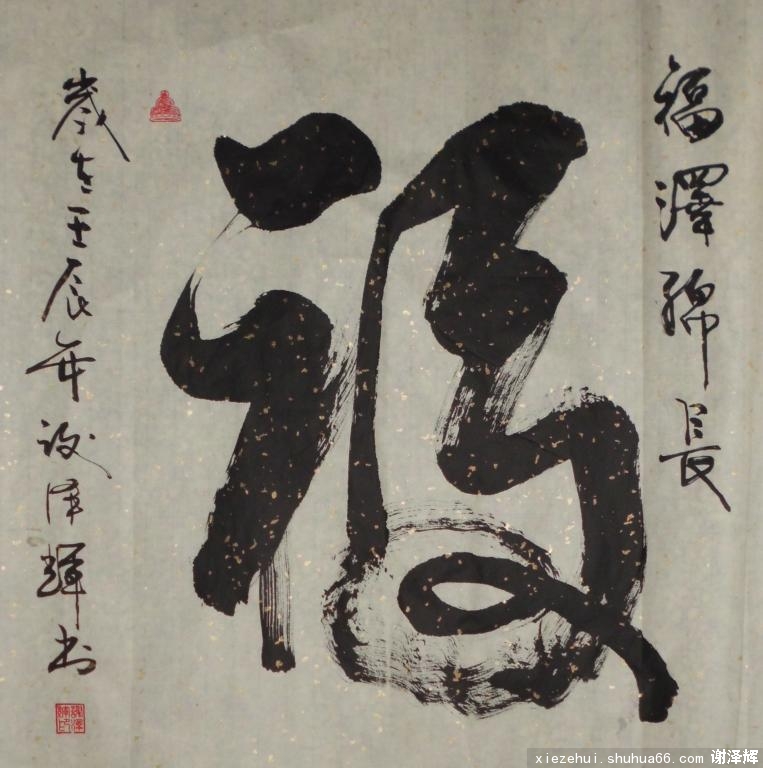 福澤綿長
福
歲在壬辰年謝澤輝书
xiezehui.shuhua66.com 谢泽辉